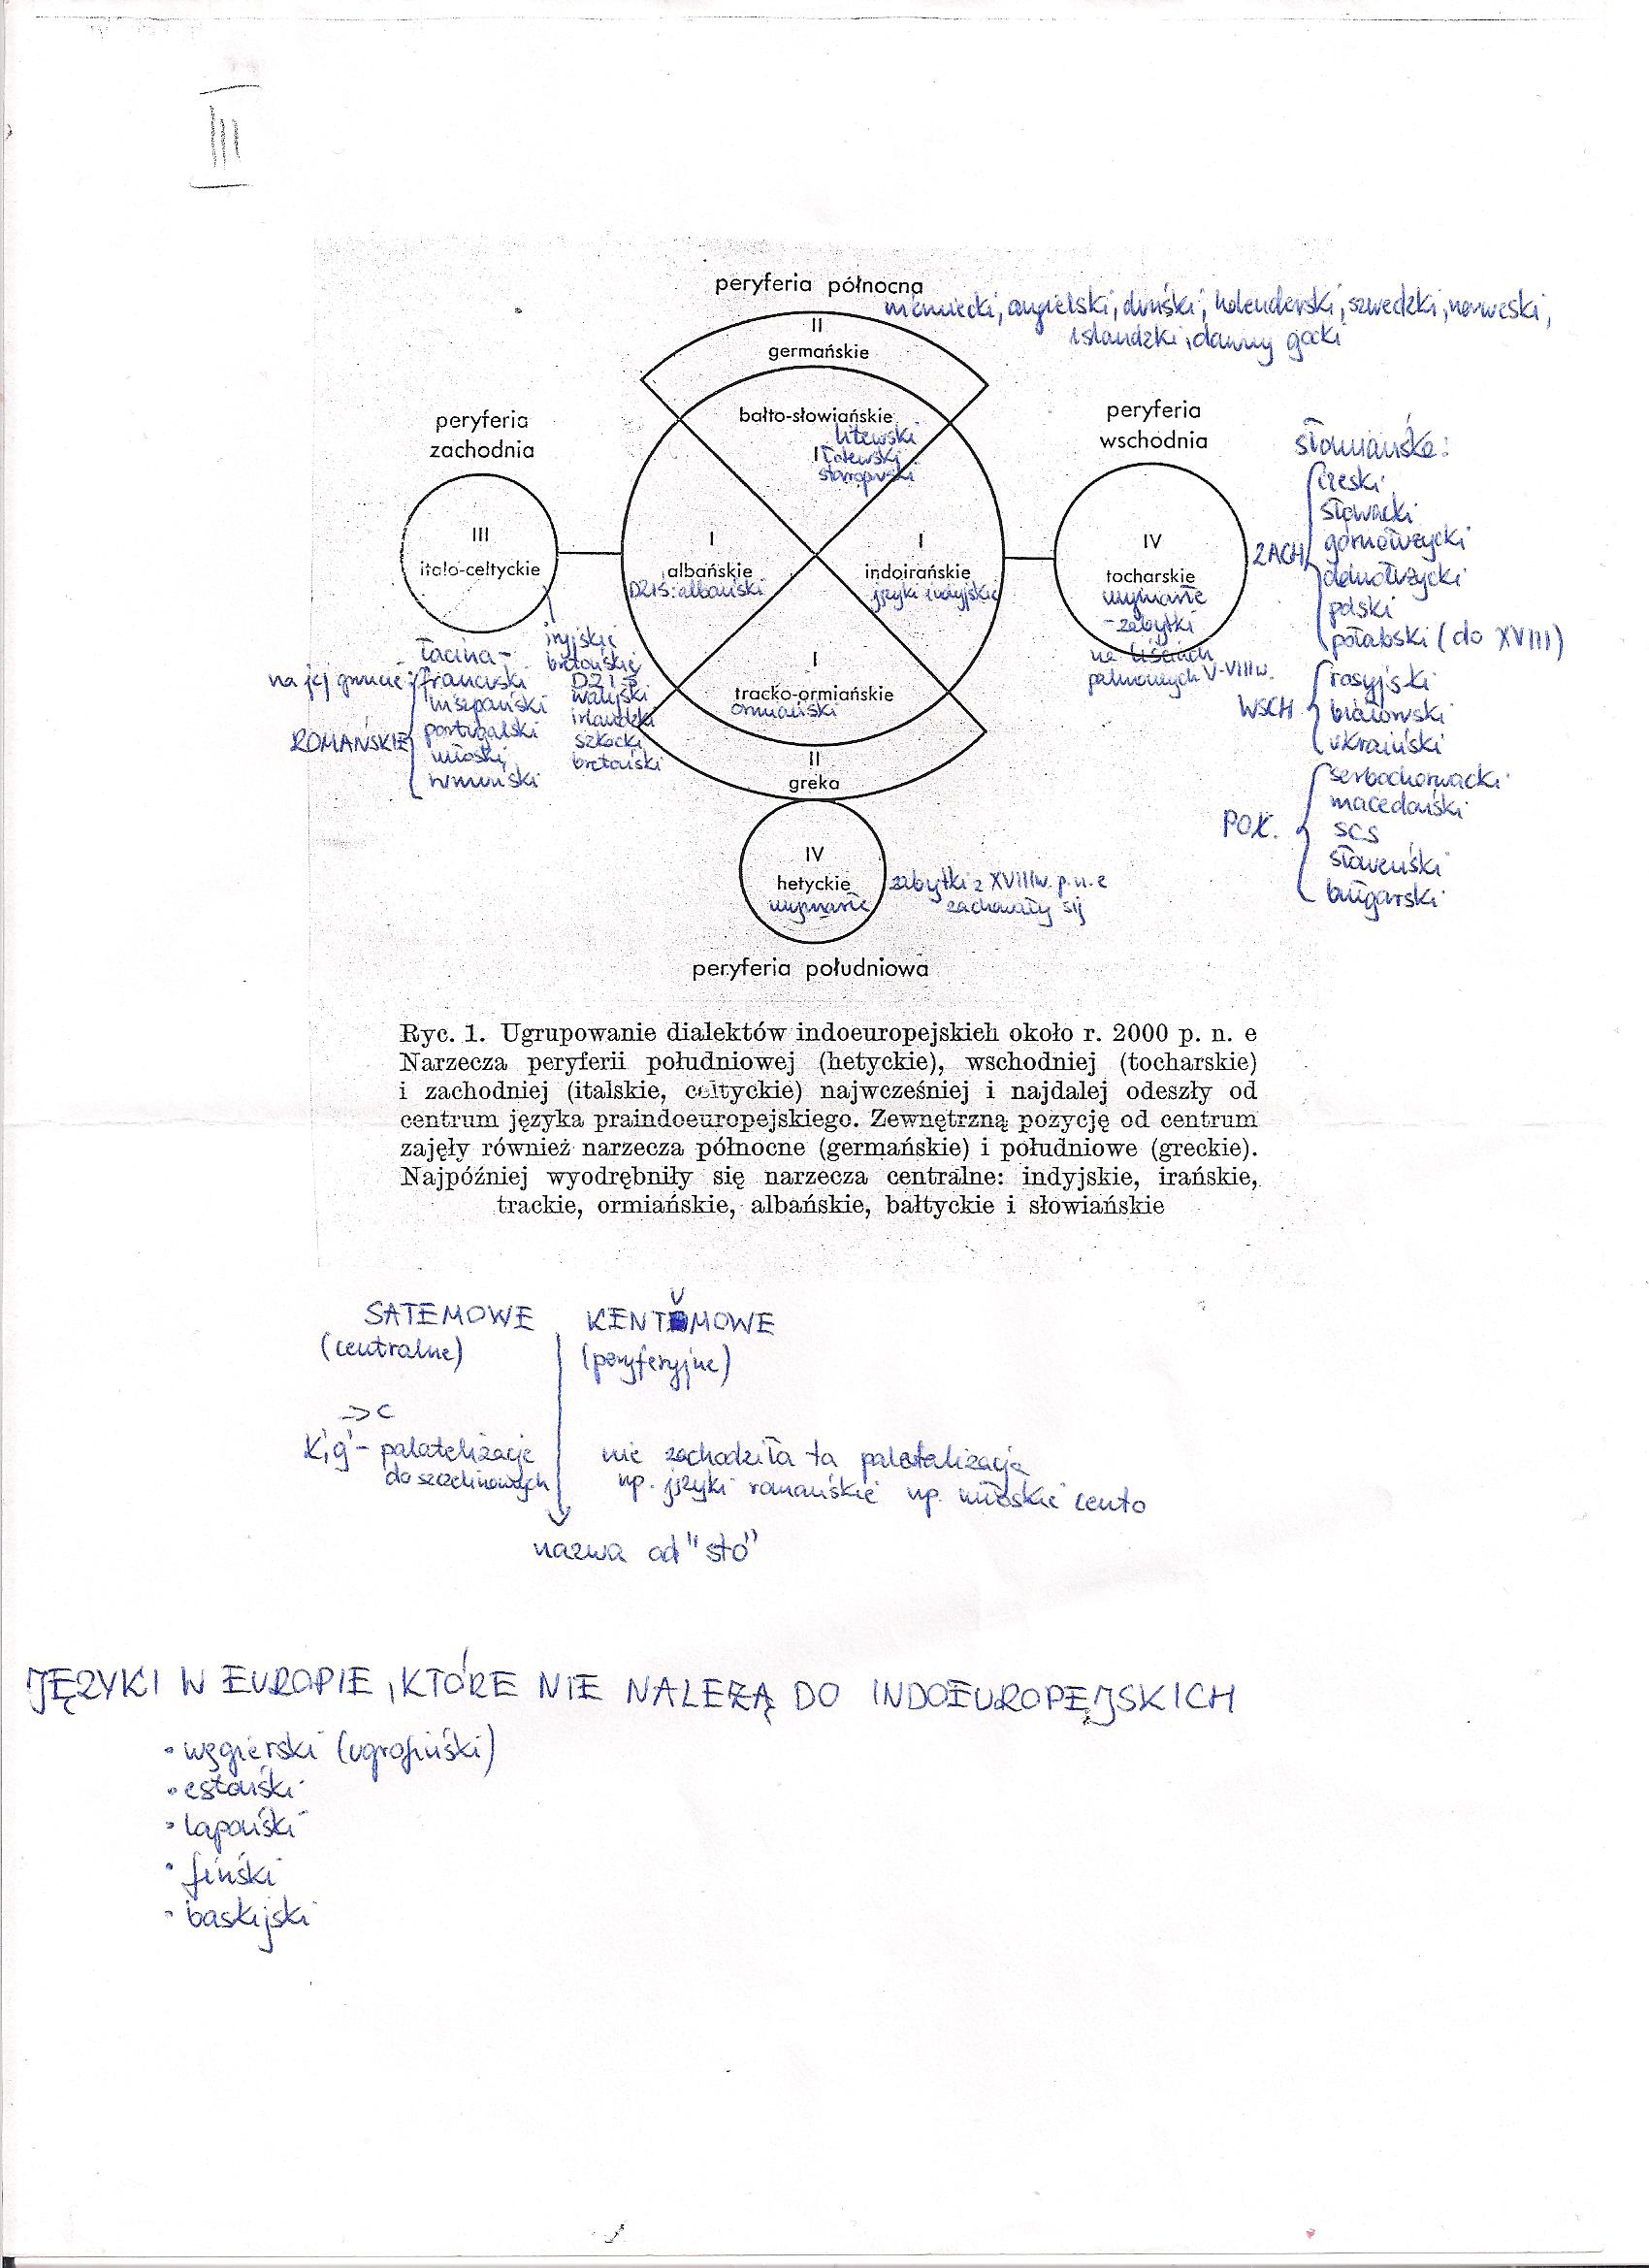 III
peryferia północna
niemiecki, angielski, duński, holenderski, szwedzki, norweski,
islandzki, dawny gocki
II
germańskie
peryferia
zachodnia
III
italo-celtyckie
bałto-słowiańskie
litewski
I łotewski
staropruski
I
albańskie
DZIŚ: albański
I
indoirańskie
języki indyjskie
I
tracko-ormiańskie
ormiański
II
greka
peryferia
wschodnia
IV
tocharskie
wymarłe
- zabytki
na liściach
palmowych V-VIII w.
słowiańskie:
ZACH
czeski
słowacki
górnołużycki
dolnołużycki
polski
połabski (do XVIII)
WSCH
rosyjski
białoruski
ukraiński
POŁ.
serbochorwacki
macedoński
SCS
słoweński
bułgarski
łacina -
na jej gruncie: francuski
ROMAŃSKIE
hiszpański
portugalski
włoski
rumuński
bretońskie
DZIŚ
walijski
irlandzki
szkocki
bretoński
IV
hetyckie
wymarłe
zabytki z XVIII w. p.n.e
zachowały się
peryferia południowa
Ryc. 1. Ugrupowanie dialektów indoeuropejskich około r. 2000 p. n. e
Narzecza peryferii południowej (hetyckie), wschodniej (tocharskie)
i zachodniej (italskie, celtyckie) najwcześniej i najdalej odeszły od
centrum języka praindoeuropejskiego. Zewnętrzną pozycję od centrum
zajęły również narzecza północne (germańskie) i południowe (greckie).
Najpóźniej wyodrębniły się narzecza centralne: indyjskie, irańskie,
trackie, ormiańskie, albańskie, bałtyckie i słowiańskie
SATEMOWE
(centralne)
KENTUMOWE
(peryferyjne)
=> c
k', g' - palatelizacje
do szczelinowych
nie zachodziła ta palatalizacja
np. języki romańskie np. włoskie cento
nazwa od "sto"
JĘZYKI W EUROPIE, KTÓRE NIE NALEŻĄ DO INDOEUROPEJSKICH
• węgierski (ugrofiński)
• estoński
• lapoński
• fiński
• baskijski